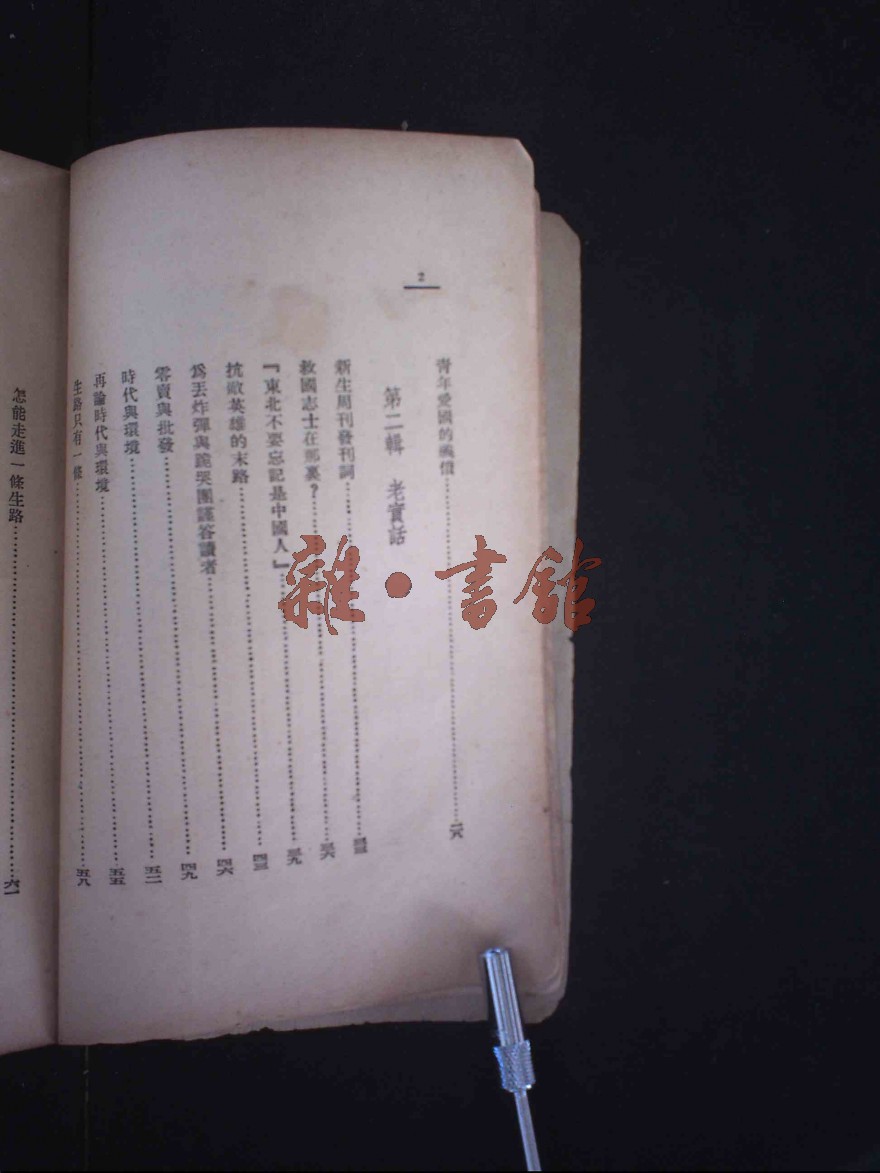 2
青年愛國的義憤……二八
第二輯 老實話
新生周刊發刊詞……三三
救國志士在那裏？……三六
『東北不要忘記是中國人』……三九
抗敵英雄的末路……四三
爲丟炸彈與跪哭團謹答讀者……四六
零賣與批發……四九
時代與環境……五二
再論時代與環境……五五
生路只有一條……五八
怎能走進一條生路……六一
雜·書館